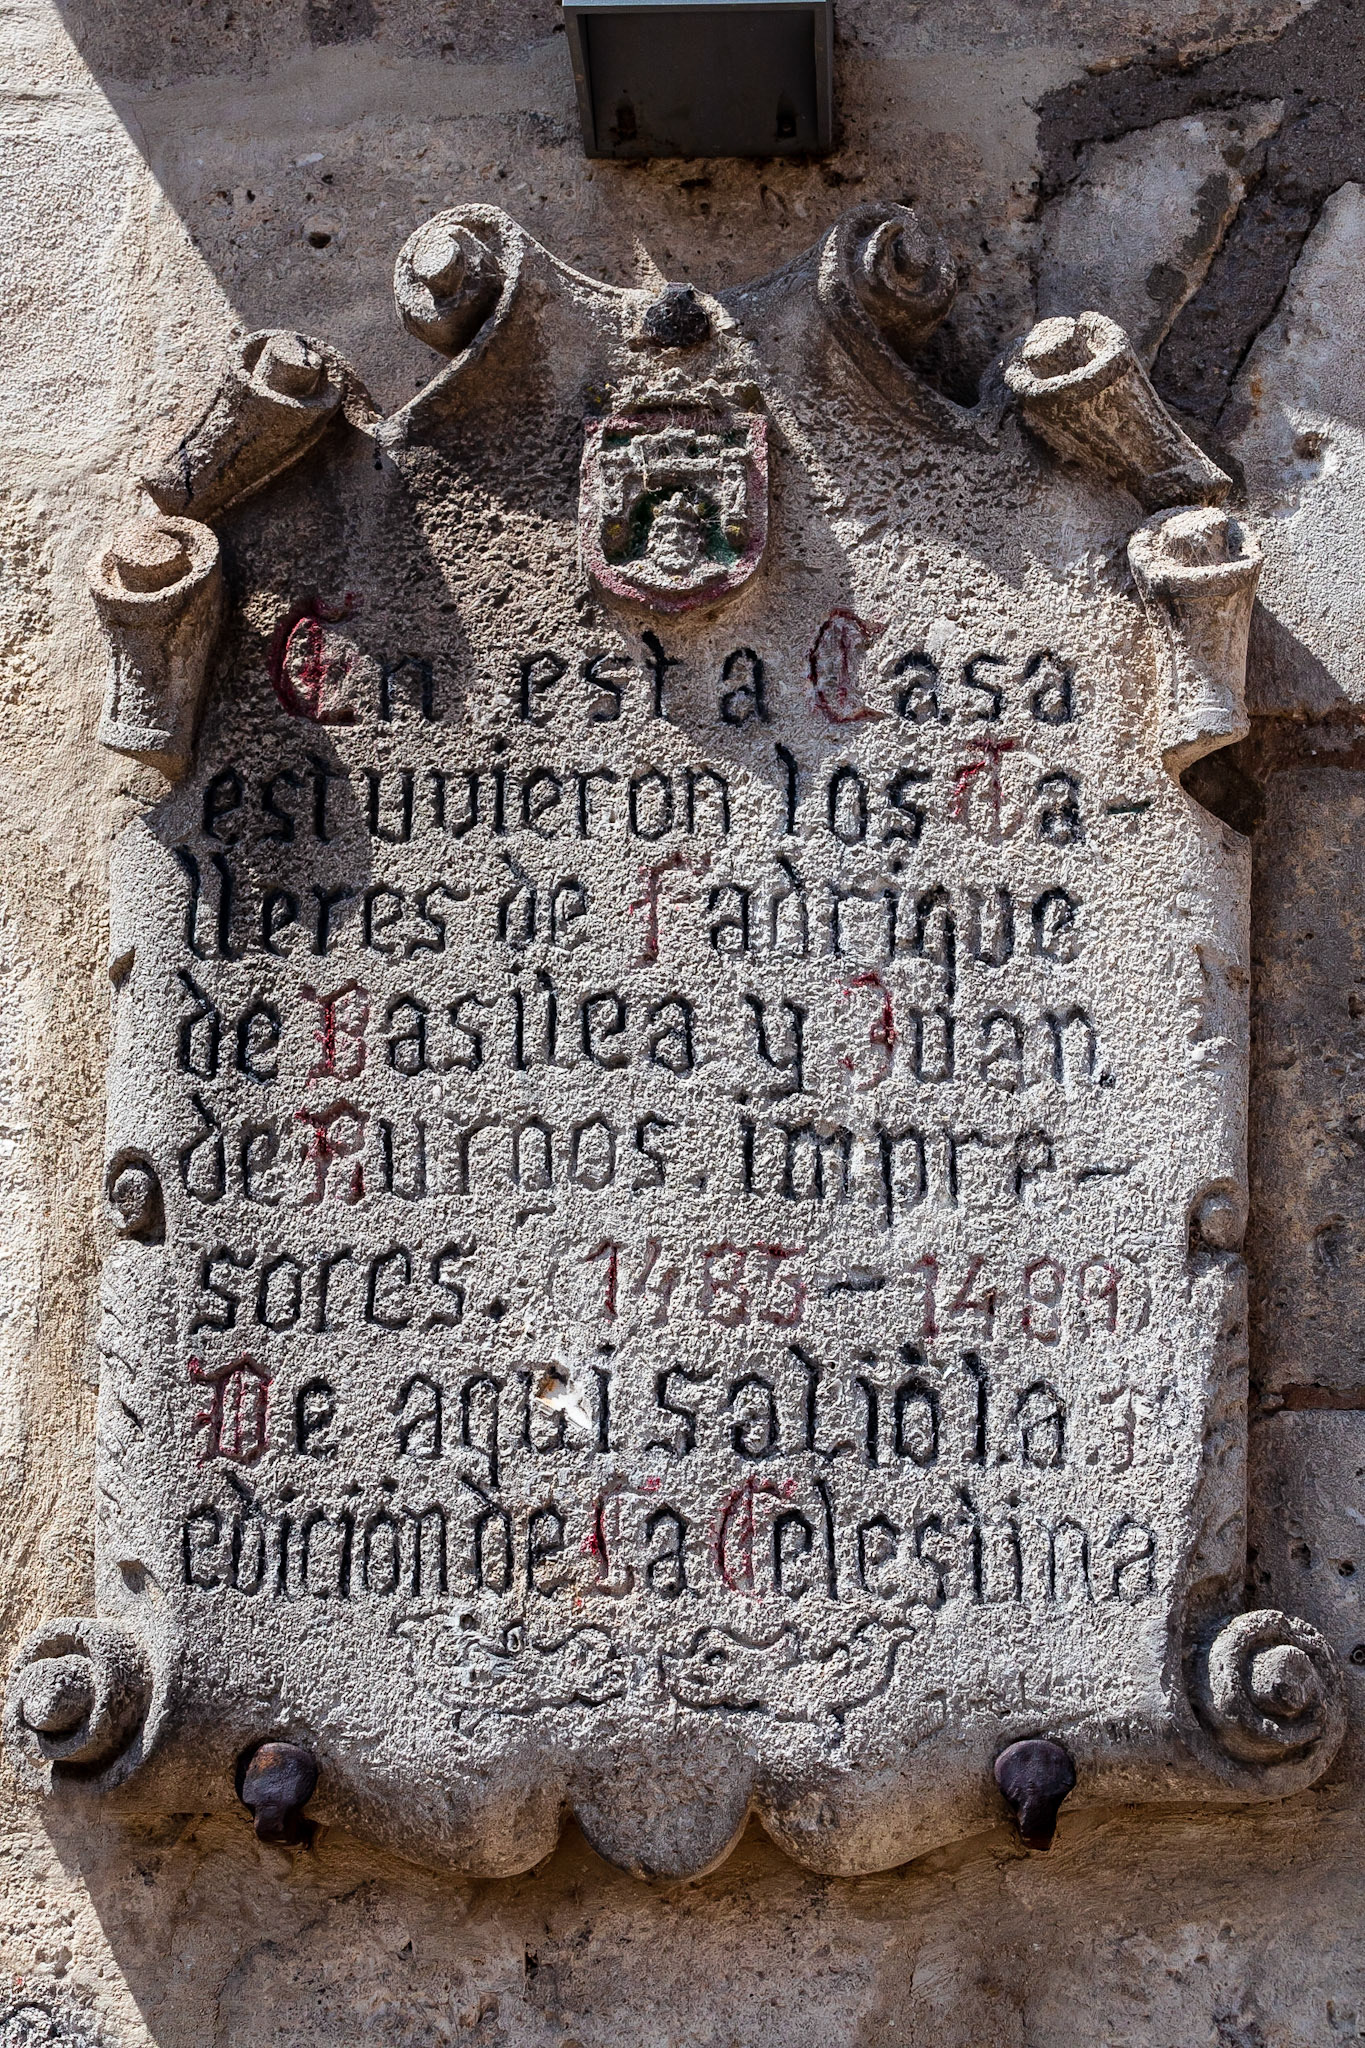 En esta Casa
estuvieron los Ta-
lleres de Fadrique
de Basilea y Juan
de Burgos. impre-
sores. 1485-1489
De aqui salió la 1
edición de La Celestina